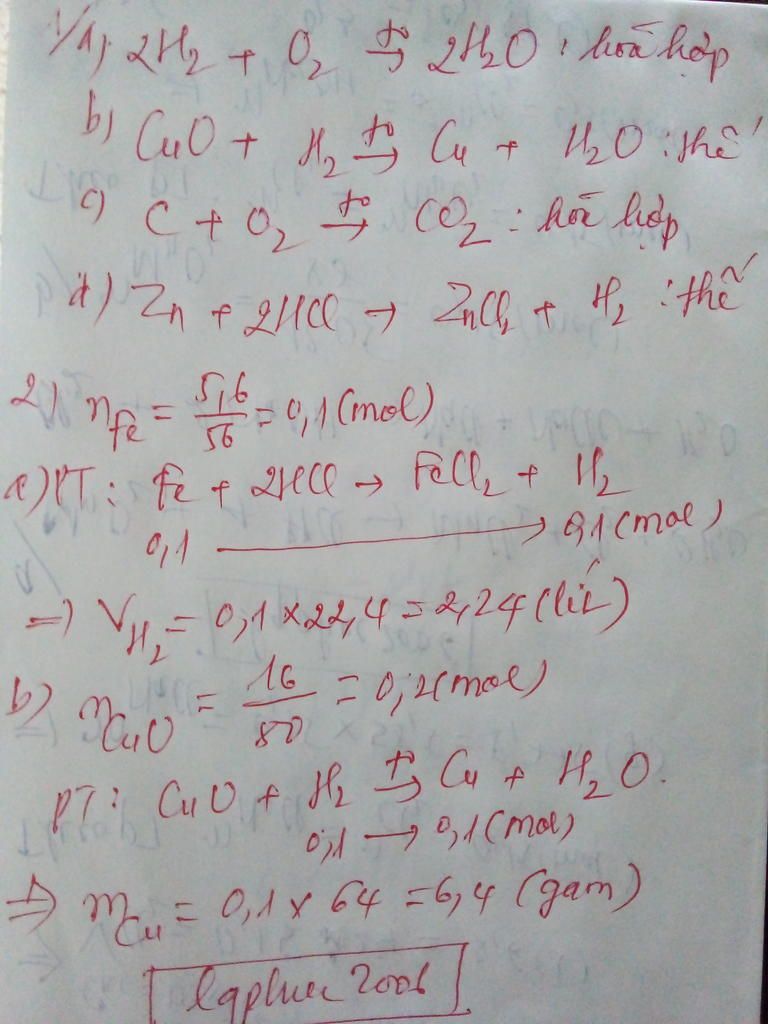 1/a) 2H₂ + O₂ →(t⁰) 2H₂O : hoá hợp
b) CuO + H₂ →(t⁰) Cu + H₂O : thế
c) C + O₂ →(t⁰) CO₂ : hoá hợp
d) Zn + 2HCl → ZnCl₂ + H₂ : thế
2) n_Fe = 5,6/56 = 0,1 (mol)
a) PT : Fe + 2HCl → FeCl₂ + H₂
0,1 → 0,1 (mol)
=> V_H₂ = 0,1 × 22,4 = 2,24 (lít)
b) n_CuO = 16/80 = 0,2 (mol)
PT : CuO + H₂ →(t⁰) Cu + H₂O.
0,1 → 0,1 (mol)
=> m_Cu = 0,1 × 64 = 6,4 (gam)
2006